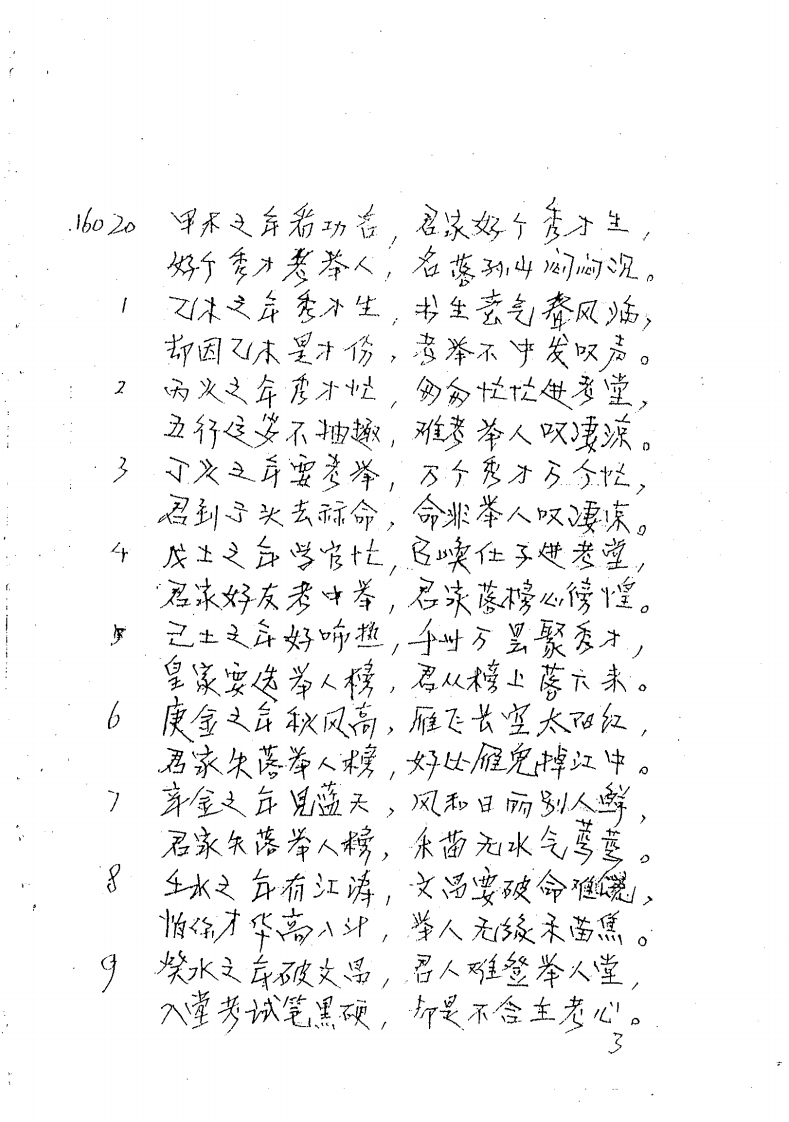 16020 甲木之年看功名，君家好个秀才生，
好个秀才考举人，名落孙山闷闷沉。
1 乙木之年秀才生，书生意气春风
却因乙木是才份，考举不中发叹声。
2 丙火之年秀才忙，匆匆忙忙进考堂，
五行这爹不抽趣，难考举人叹凄凉。
3 丁火之年要考举，万个秀才万个忙，
君到丁火去 命，命非举人叹凄凉。
4 戊土之年学官忙，已唤仕子进考堂，
君家好友考中举，君家落榜心徬惶。
5 己土之年好响热，千 万 聚秀才，
皇家要选举人榜，君从榜上落下来。
6 庚金之年秋风高，雁飞长空太阳红，
君家失落举人榜，好比雁儿掉江中。
7 辛金之年见蓝天，风和日丽别人鲜，
君家失落举人榜，禾苗无水气蔫蔫。
8 壬水之年有江涛，文昌要破命难
怕你才华高八斗，举人无缘禾苗焦。
9 癸水之年破文昌，君人难登举人堂，
入堂考试笔墨硬，却是不合主考心。
3